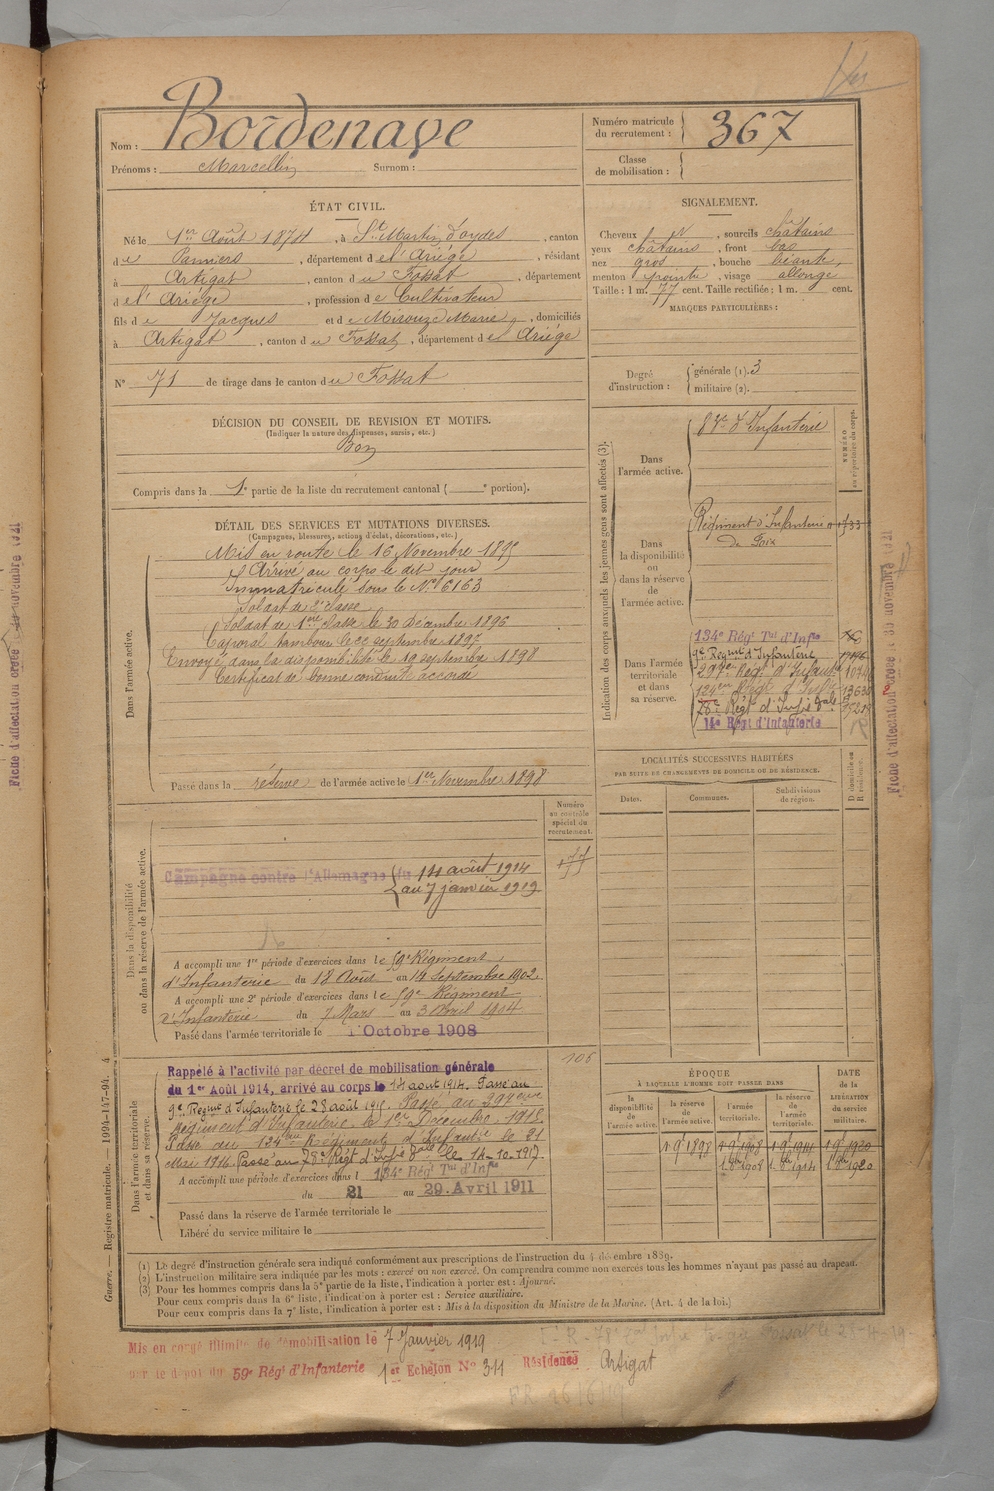 Nom : Bordenave
Prénoms : Marcellin Surnom :
Numéro matricule du recrutement : 367
Classe de mobilisation :
ÉTAT CIVIL.
Né le 1er Août 1874, à St Martin d'oydes, canton
de Pamiers, département de l'Ariège, résidant
à Artigat, canton du Fossat, département
de l'Ariège, profession de Cultivateur
fils de Jacques et de Mirouze Marie, domiciliés
à Artigat, canton du Fossat, département de l'Ariège
N° 71 de tirage dans le canton du Fossat
SIGNALEMENT.
Cheveux N, sourcils châtains
yeux châtains, front bas
nez gros, bouche béante,
menton pointu, visage allongé
Taille : 1 m. 77 cent. Taille rectifiée : 1 m. cent.
MARQUES PARTICULIÈRES :
Degré d'instruction : générale (1). 3
militaire (2).
DÉCISION DU CONSEIL DE REVISION ET MOTIFS.
(Indiquer la nature des dispenses, sursis, etc.)
Bon
Compris dans la 1e partie de la liste du recrutement cantonal ( e portion).
DÉTAIL DES SERVICES ET MUTATIONS DIVERSES.
(Campagnes, blessures, actions d'éclat, décorations, etc.)
Dans l'armée active.
Mis en route le 16 Novembre 1895
Arrivé au corps le dit jour
Immatriculé sous le N° 6163
Soldat de 2e classe
Soldat de 1ere classe le 30 Décembre 1896
Caporal tambour le septembre 1897
Envoyé dans la disponibilité le 19 septembre 1898
Certificat de bonne conduite accordé
Passé dans la réserve de l'armée active le 1er Novembre 1898
Indication des corps auxquels les jeunes gens sont affectés (3).
NUMÉRO au répertoire du corps.
Dans l'armée active.
d'Infanterie
Dans la disponibilité ou dans la réserve de l'armée active.
Régiment d'Infanterie
De Foix
Dans l'armée territoriale et dans sa réserve.
134e Régt Tal d'Infie
9e Régiment d'Infanterie
297e Régt d'Infanterie
124eme Régt d'Infie 13630
78e Régt d'Infie
14e Régt d'Infanterie
LOCALITÉS SUCCESSIVES HABITÉES
PAR SUITE DE CHANGEMENTS DE DOMICILE OU DE RÉSIDENCE.
Dates. Communes. Subdivisions de région. D domicile ou R résidence.
Numéro au contrôle spécial du recrutement.
Dans la disponibilité ou dans la réserve de l'armée active.
Campagne contre l'Allemagne du 14 août 1914
au 7 janvier 1919
A accompli une 1re période d'exercices dans le 59e Régiment
d'Infanterie du 18 Août au 14 Septembre 1902
A accompli une 2e période d'exercices dans le 59e Régiment
d'Infanterie du 7 Mars au 3 Avril 1904
Passé dans l'armée territoriale le 1 Octobre 1908
106
Dans l'armée territoriale et dans sa réserve.
Rappelé à l'activité par décret de mobilisation générale
du 1er Août 1914, arrivé au corps le 14 août 1914. Passé au
9e Régime d'Infanterie le 28 août 1915. Passé au
Régiment d'Infanterie le 1er Décembre
Passé au 124eme Régiment d'Infantie le 21
Mai Passé au 78e Régt d'Infie le 14-10-1917
A accompli une période d'exercices dans l 134e Régt Tal d'Infie
du 21 au 29 Avril 1911
Passé dans la réserve de l'armée territoriale le
Libéré du service militaire le
ÉPOQUE
À LAQUELLE L'HOMME DOIT PASSER DANS
la disponibilité de l'armée active. la réserve de l'armée active. l'armée territoriale. la réserve de l'armée territoriale.
DATE de la LIBÉRATION du service militaire.
1 9 1898 1 9 1908 1 9 1914 1 9 1920
1 8bre 1908 1 8bre 1914 1 8bre 1920
(1) Le degré d'instruction générale sera indiqué conformément aux prescriptions de l'instruction du 4 décembre 1889.
(2) L'instruction militaire sera indiquée par les mots : exercé ou non exercé. On comprendra comme non exercés tous les hommes n'ayant pas passé au drapeau.
(3) Pour les hommes compris dans la 5e partie de la liste, l'indication à porter est : Ajourné.
Pour ceux compris dans la 6e liste, l'indication à porter est : Service auxiliaire.
Pour ceux compris dans la 7e liste, l'indication à porter est : Mis à la disposition du Ministre de la Marine. (Art. 4 de la loi.)
Guerre. — Registre matricule. — 1994-147-94. 4
Mis en congé illimité de démobilisation le 7 Janvier 1919
par le dépot du 59e Régt d'Infanterie 1er Echelon N° 311 Résidence Artigat
FR 16/6/19